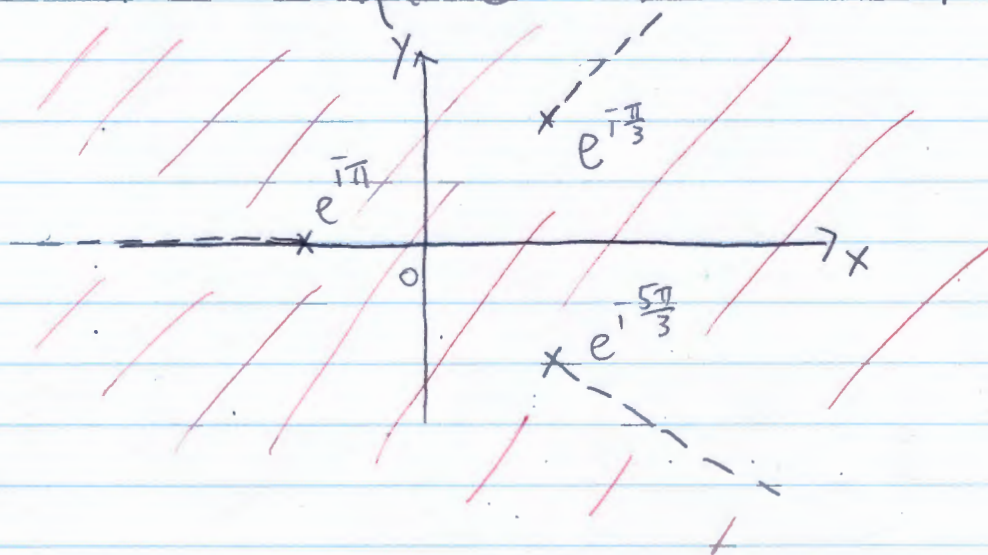 y
e^{iπ/3}
e^{iπ}
x
0
e^{i5π/3}